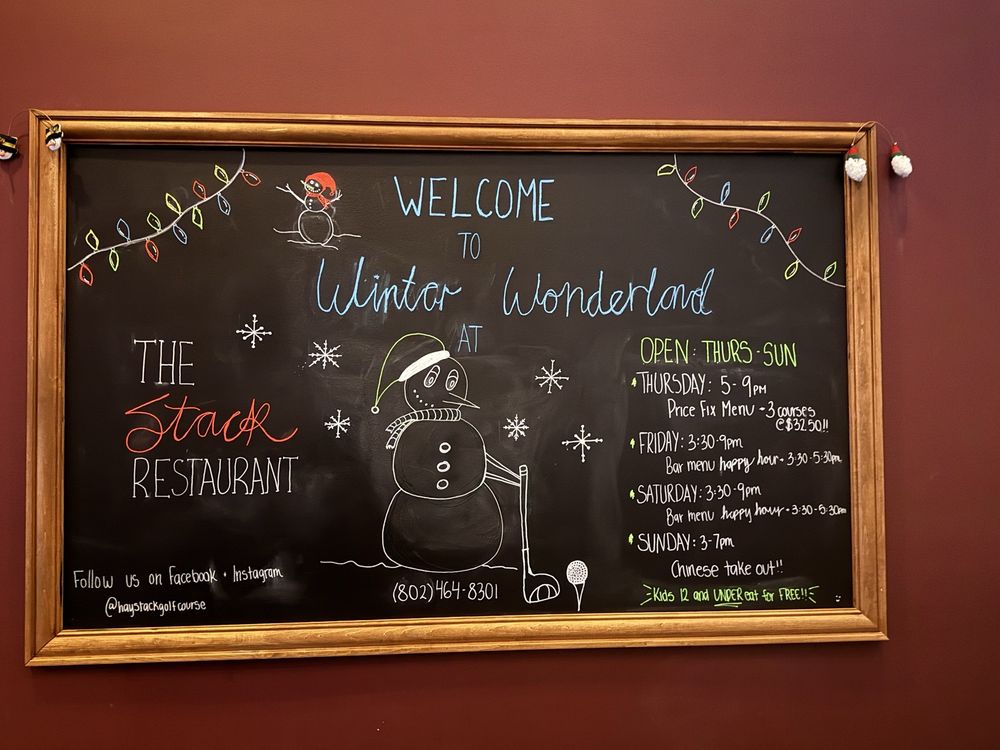 WELCOME
TO
Winter Wonderland
AT
THE
Stack
RESTAURANT
Follow us on Facebook + Instagram
@haystackgolfcourse
(802)464-8301
OPEN: THURS-SUN
THURSDAY: 5-9pm
Price Fix Menu - 3 courses
@$32.50!!
FRIDAY: 3:30-9pm
Bar menu happy hour - 3:30-5:30pm
SATURDAY: 3:30-9pm
Bar menu happy hour - 3:30-5:30pm
SUNDAY: 3-7pm
Chinese take out!!
Kids 12 and UNDER eat for FREE!!